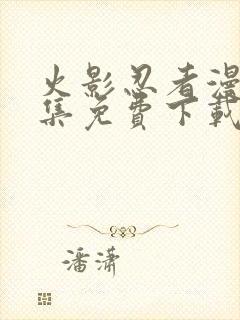 火影忍者漫
集免费下载
潘潇